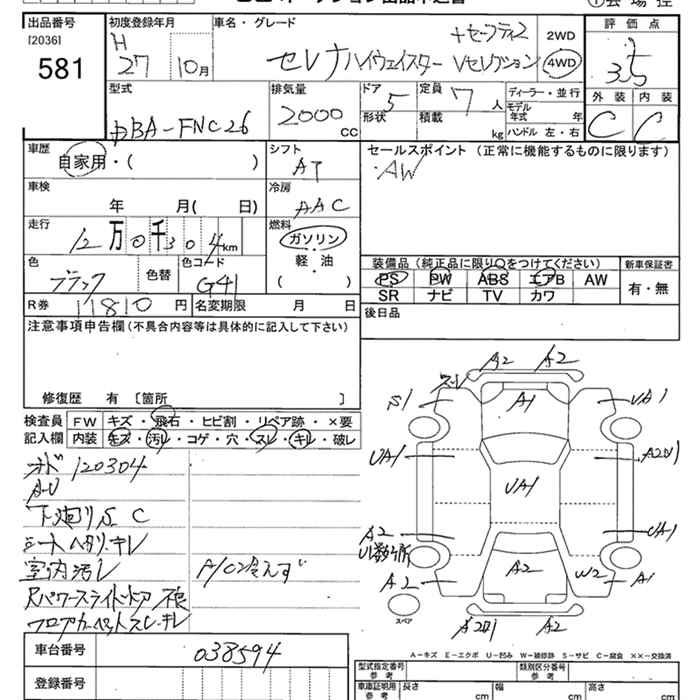 出品番号 初度登録年月 車名・グレード
[2036] H 27 10月 セレナ ハイウェイスター Vセレクション +セーフティ2 2WD 4WD
581
評価点 3.5
外装 内装
C C
型式 DBA-FNC26
排気量 2000 CC
ドア 5 定員 7 人
形状 積載 kg
ディーラー・並行
モデル年式 年
ハンドル 左・右
車歴 自家用・( )
シフト AT
セールスポイント (正常に機能するものに限ります)
・AW
車検 年 月( 日)
冷房 AAC
走行 12万0千304km
燃料 ガソリン 軽・油 ( )
色 ブラック 色替 色コード G41
装備品 (純正品に限り○をつけてください) 新車保証書
PS PW ABS エアB AW 有・無
SR ナビ TV カワ
R券 11810円 名変期限 月 日
後日品
注意事項申告欄 (不具合内容等は具体的に記入して下さい)
修復歴 有 〔箇所 〕
検査員 FW キズ・飛石・ヒビ割・リペア跡・×要
記入欄 内装 キズ・汚レ・コゲ・穴・スレ・キレ・破レ
オド 120304
下廻りS C
シートヘタリ、キレ
室内汚レ A/C冷えず
Rパワースライドドア 不良
フロアカーペットスレ、キレ
A2 A2
S1 A1 UA1
UA1 UA1 A2U1
A2 UA1
U1数ヶ所
A2 A2 W2 A1
スペア A2U1 A2
A-キズ E-エクボ U-凹み W-補修跡 S-サビ C-腐食 ××-交換済
車台番号 038594
登録番号
型式指定番号 参考 類別区分番号 参考
車庫証明用 参考 長さ cm 幅 cm 高さ cm